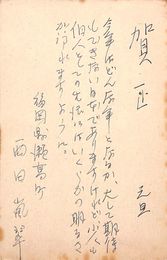 賀正 元旦
今年はどんな年となるか、大して期待
してきない日本でありますけれど少くも
伯人としての生活にはいくらかの明るさ
が訪れますように。
福岡県瀬高町
西田嵐翠